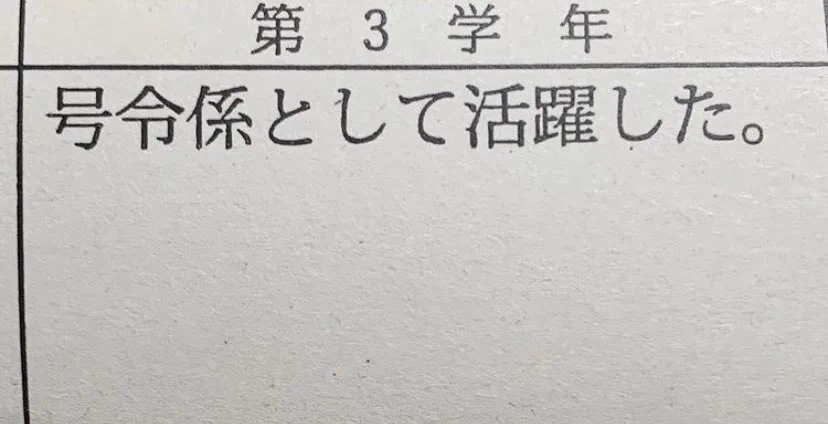 第3学年
号令係として活躍した。